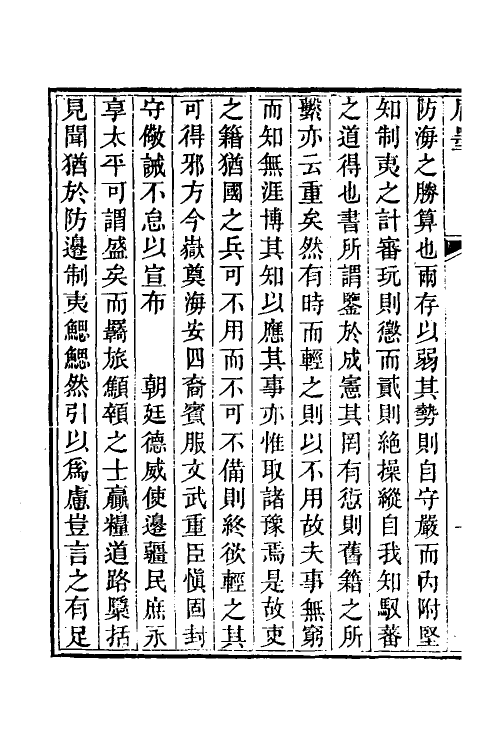 防海之勝算也兩存以弱其勢則自守嚴而內附堅
知制夷之計審玩則懲而貳則絶操縱自我知馭蕃
之道得也書所謂鑒於成憲其罔有愆則舊籍之所
繫亦云重矣然有時而輕之則以不用故夫事無窮
而知無涯博其知以應其事亦惟取諸豫焉是故吏
之籍猶國之兵可不用而不可不備則終欲輕之其
可得邪方今嶽奠海安四裔賓服文武重臣愼固封
守儆誡不怠以宣布　　朝廷德威使邊疆民庶永
享太平可謂盛矣而羇旅顦顇之士贏糧道路櫽括
見聞猶於防邊制夷鰓鰓然引以爲慮豈言之有足